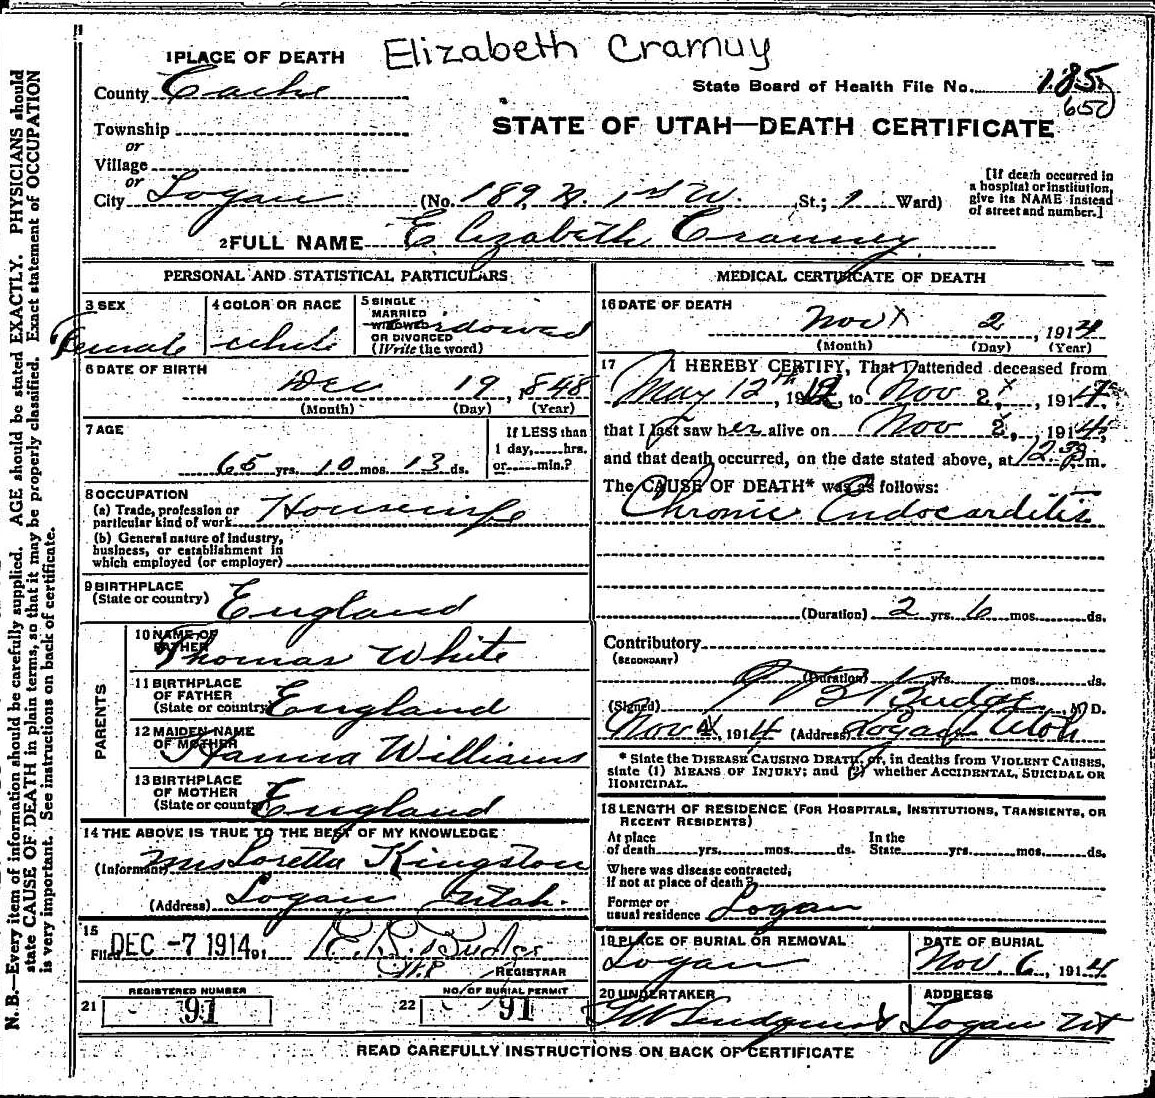 Elizabeth Cramuy
1 PLACE OF DEATH
County Cache
State Board of Health File No. 185
650
Township
or
Village
or
City Logan (No. 189 N. 1st W. St.; 1 Ward)
STATE OF UTAH—DEATH CERTIFICATE
[If death occurred in
a hospital or institution,
give its NAME instead
of street and number.]
2 FULL NAME Elizabeth Cranney
PERSONAL AND STATISTICAL PARTICULARS
3 SEX
Female
4 COLOR OR RACE
white
5 SINGLE
MARRIED
WIDOWED
OR DIVORCED
(Write the word)
widowed
6 DATE OF BIRTH
Dec 19, 1848
(Month) (Day) (Year)
7 AGE
65 yrs. 10 mos. 13 ds.
If LESS than
1 day, hrs.
or min.?
8 OCCUPATION
(a) Trade, profession or
particular kind of work Housewife
(b) General nature of industry,
business, or establishment in
which employed (or employer)
9 BIRTHPLACE
(State or country) England
PARENTS
10 NAME OF
FATHER
Thomas White
11 BIRTHPLACE
OF FATHER
(State or country) England
12 MAIDEN NAME
OF MOTHER
Hanna Williams
13 BIRTHPLACE
OF MOTHER
(State or country) England
14 THE ABOVE IS TRUE TO THE BEST OF MY KNOWLEDGE
(Informant) Mrs Loretta Kingston
(Address) Logan Utah.
15
Filed DEC -7 1914 191
REGISTRAR
REGISTERED NUMBER
21 91
NO. OF BURIAL PERMIT
22 91
MEDICAL CERTIFICATE OF DEATH
16 DATE OF DEATH
Nov 2, 1914
(Month) (Day) (Year)
17 I HEREBY CERTIFY, That I attended deceased from
May 12th, 1912, to Nov 2, 1914,
that I last saw her alive on Nov 2, 1914,
and that death occurred, on the date stated above, at 12.30 m.
The CAUSE OF DEATH* was as follows:
Chronic Endocarditis
(Duration) 2 yrs. 6 mos. ds.
Contributory
(SECONDARY)
(Duration) yrs. mos. ds.
(Signed) Budge, M. D.
Nov 4, 1914 (Address) Logan Utah
* State the DISEASE CAUSING DEATH, or, in deaths from VIOLENT CAUSES,
state (1) MEANS OF INJURY; and (2) whether ACCIDENTAL, SUICIDAL OR
HOMICIDAL.
18 LENGTH OF RESIDENCE (FOR HOSPITALS, INSTITUTIONS, TRANSIENTS, OR
RECENT RESIDENTS)
At place In the
of death yrs. mos. ds. State yrs. mos. ds.
Where was disease contracted,
if not at place of death?
Former or
usual residence Logan
19 PLACE OF BURIAL OR REMOVAL
Logan
DATE OF BURIAL
Nov. 6, 1914
20 UNDERTAKER
ADDRESS
Logan Ut
READ CAREFULLY INSTRUCTIONS ON BACK OF CERTIFICATE
N. B.—Every item of information should be carefully supplied. AGE should be stated EXACTLY. PHYSICIANS should
state CAUSE OF DEATH in plain terms, so that it may be properly classified. Exact statement of OCCUPATION
is very important. See instructions on back of certificate.